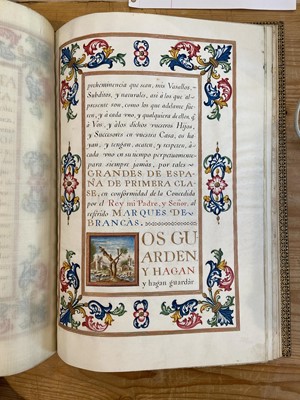 preheminencia que sean, mis Vasallos,
Subditos, y naturales, asi à los que al-
presente son, como los que adelante fue-
ren, y à cada uno, y qualquiera de ellos, q̃
à Vos, y à los dichos vuestros Hijos,
y Sucesores en vuestra Casa, os ha-
yan, y tengan, acaten, y respeten, à
cada uno en su tiempo perpetuamente
para siempre jamàs, por tales
GRANDES DE ESPA-
ÑA DE PRIMERA CLA-
SE, en conformidad de la Concedida
por el Rey mi Padre, y Señor, al
referido MARQUES DE
BRANCAS.
OS GU
ARDEN,
Y HAGAN
y hagan guardàr